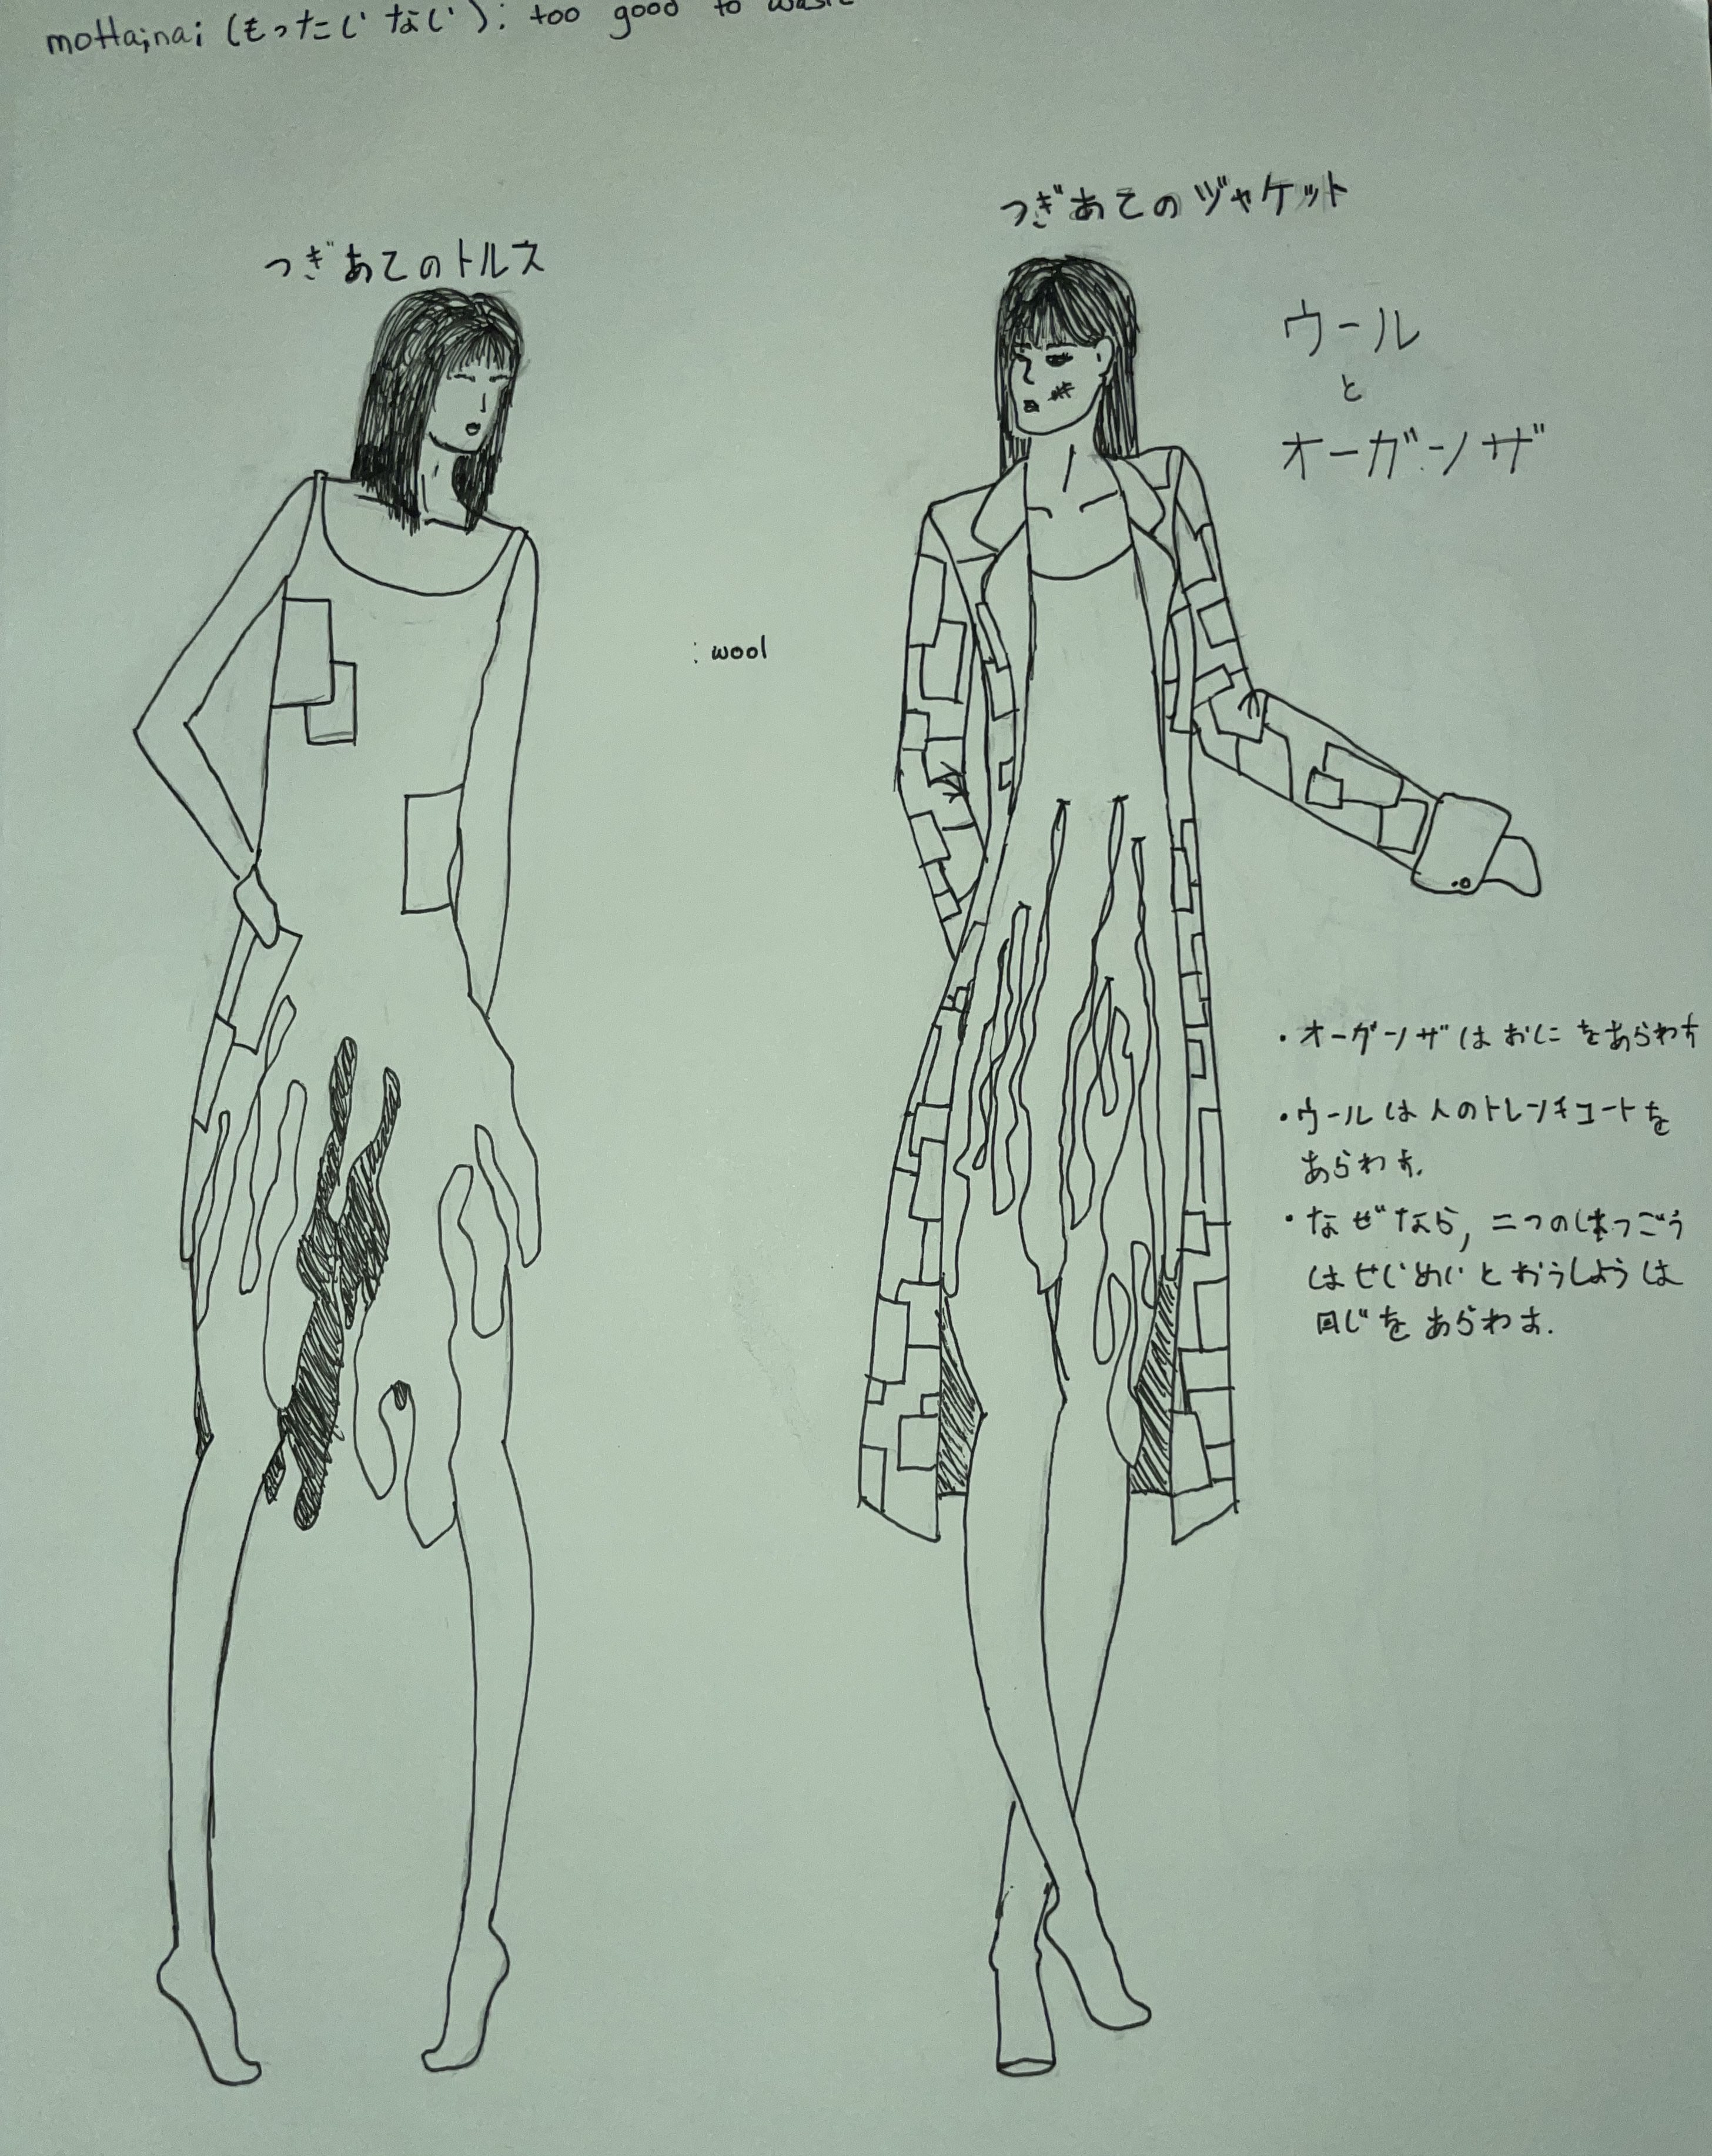 mottainai (もったいない): too good to waste
つぎあてのトルス
つぎあてのヅャケット
ウール
と
オーガンザ
: wool
・オーガンザはおにをあらわす
・ウールは人のトレンチコートを
あらわす.
・なぜなら, 二つのはつごう
はせいめいとおうしようは
目じをあらわす.